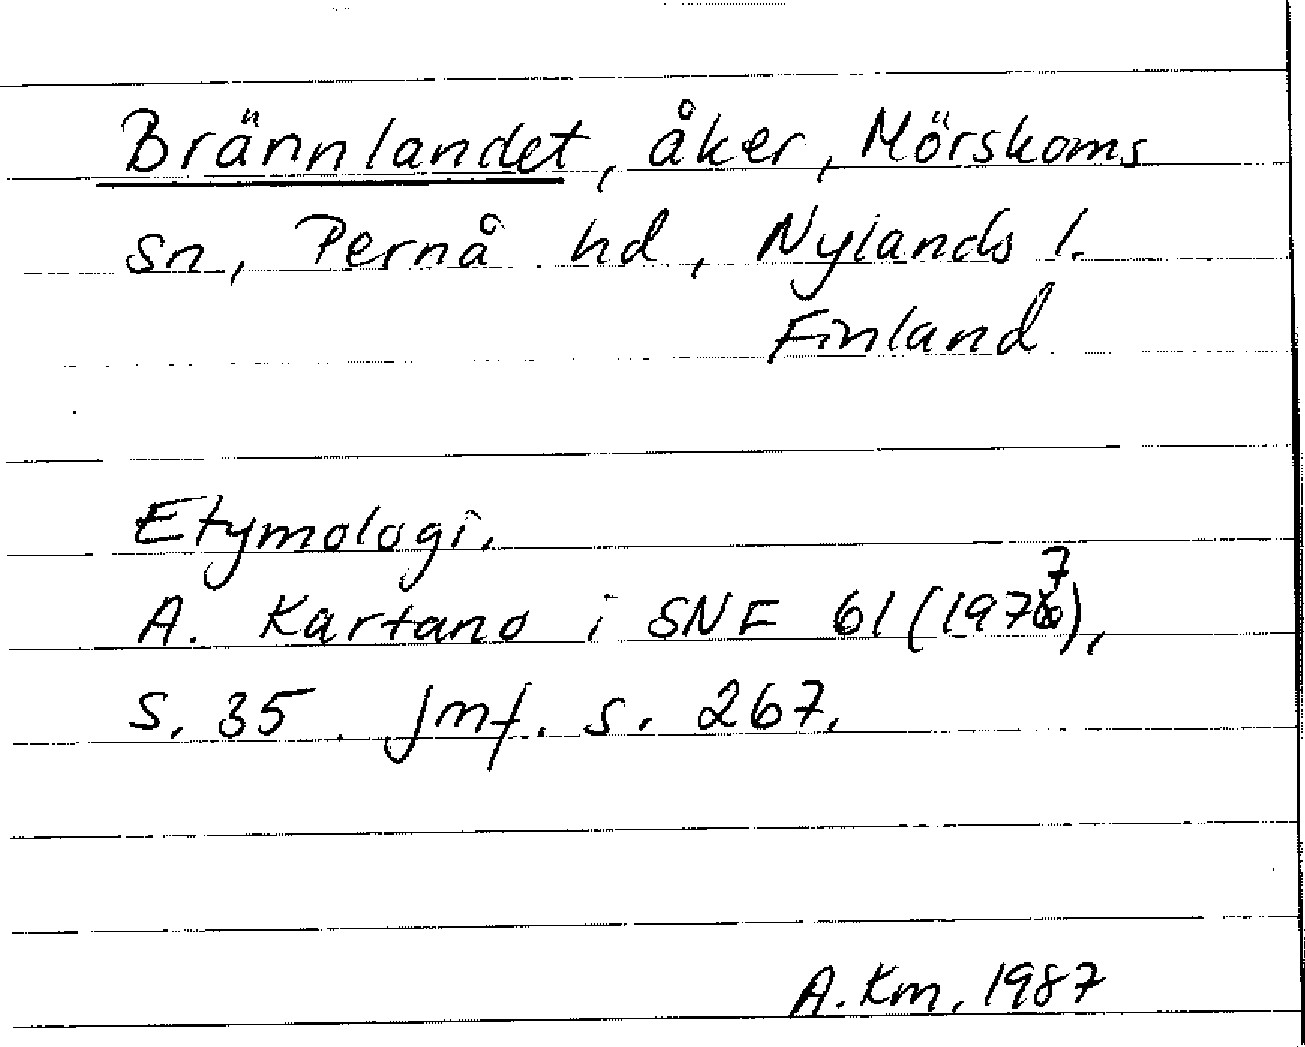 Brännlandet, åker, Mörskoms
sn, Pernå hd, Nylands l.
Finland
Etymologi.
A. Kartano i SNF 61 (1977),
s. 35. Jmf. s. 267.
A. Km, 1987